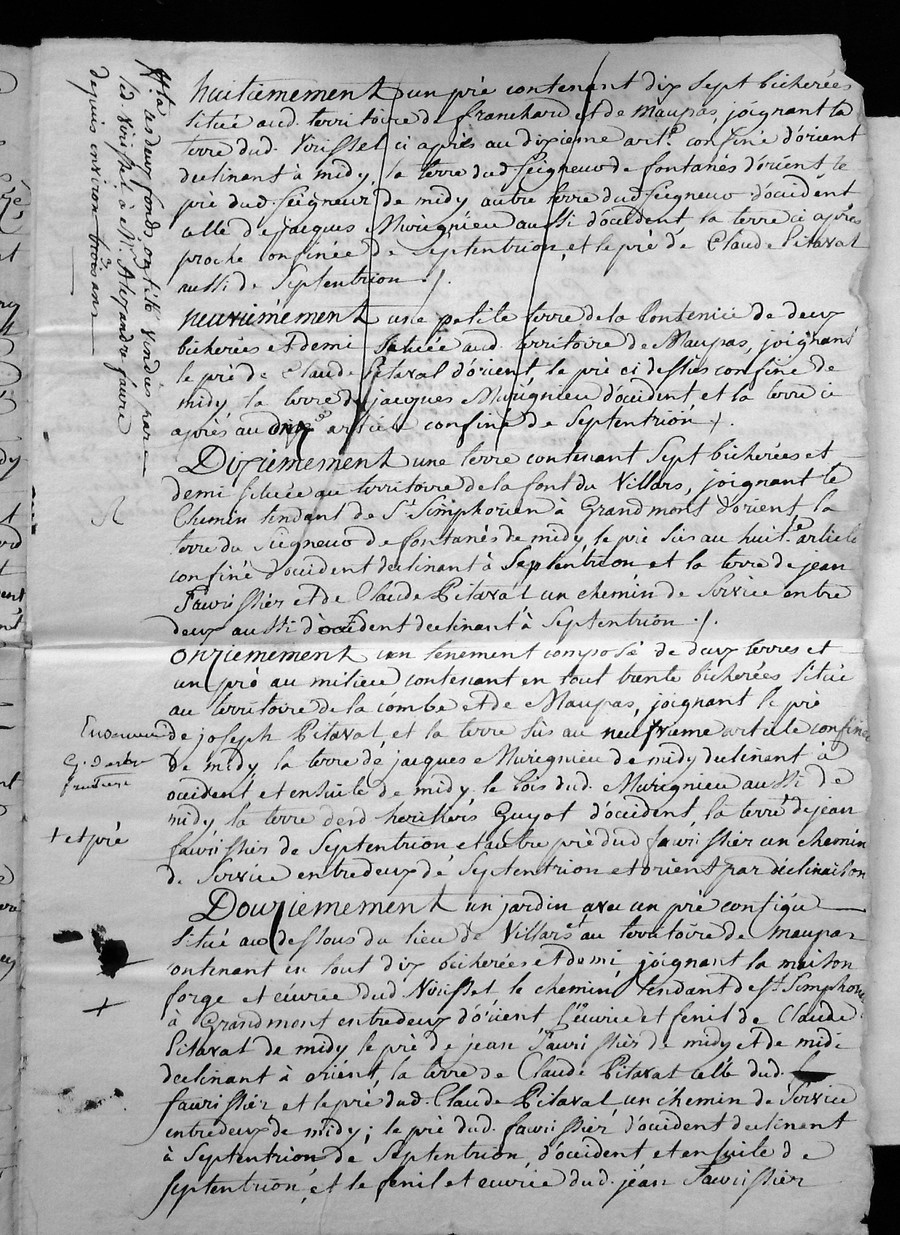 huitiemement un pré contenant dix sept bicherées
situé aud. territoire de franchard et de maupas, joignant la
terre dud. Voisset ci après au dixieme art.e confiné d'orient
declinant à midy, la terre dud Seigneur de fontanés d'orient le
pré dud. Seigneur de midy autre terre dud Seigneur d'occident
celle de jacques Murignieu aussi d'occident la terre ci après
proche confinée de Septentrion, et le pré de Claude Pitaval
aussi de Septentrion ./.
neuviemement une petite terre de la Contenue de deux
bicherées et demi Située aud. territoire de Maupas, joignant
le pré de Claude Pitaval d'orient, le pré ci dessus confiné de
midy la terre de jacques Murignieu d'occident et la terre ci
après au article confiné de Septentrion ./.
Dixiemement une terre contenant Sept bicherées et
demi Située au territoire de la font du Villars, joignant le
Chemin tendant de St Simphorien à Grandmont d'orient, la
terre du Seigneur de fontanés de midy, le pré sus au huit.e article
confiné d'occident declinant à Septentrion et la terre de jean
faurissier et de Claude Pitaval un chemin de Service entre
deux aussi d'occident declinant à Septentrion ./.
Onziemement un tenement composé de deux terres et
un pré au milieu contenant en tout trente bicherées Situé
au territoire de la combe et de Maupas, joignant le pré
de joseph Pitaval, et la terre sus au neufvieme article confinée
de midy la terre de jacques Murignieu de midy declinant à
occident et ensuite de midy, le bois dud. Murignieu aussi de
midy la terre desd heritiers Guyot d'occident, la terre de jean
faurissier de Septentrion et autre pré dud faurissier un chemin
de Service entredeux de Septentrion et orient par declinaison
Douziemement un jardin avec un pré contigu
Situé au dessous du lieu de Villars et au territoire de maupas
contenant en tout dix bicherées et demi joignant la maison
forge et écurie dud Voisset le chemin tendant de St Simphorien
à Grandmont entredeux d'orient l'écurie et fenil de Claude
Pitaval de midy le pré de jean faurissier de midy et de midi
declinant à orient, la terre de Claude Pitaval celle dud.
faurissier et le pré dud. Claude Pitaval un chemin de Service
entredeux de midy; le pré dud. faurissier d'occident declinant
à Septentrion de Septentrion, d'occident et ensuite de
Septentrion, et le fenil et écurie dud. jean faurissier
ces deux fonds ont été Vendus par
led. Voisset à Mr. Alexandre faure
depuis environ trois ans
+ et pré
+